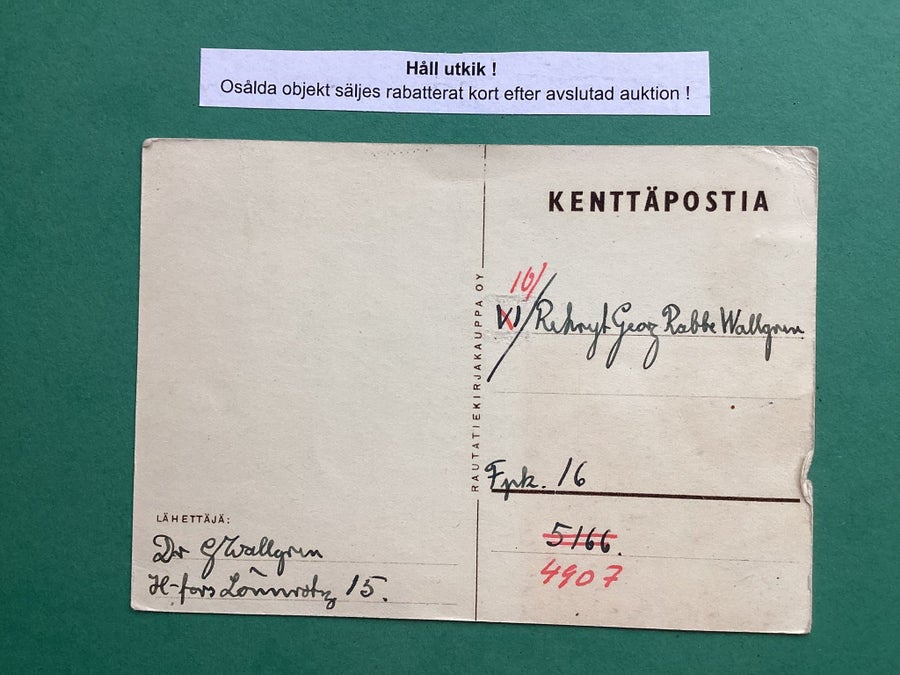 Håll utkik !
Osålda objekt säljes rabatterat kort efter avslutad auktion !
KENTTÄPOSTIA
10/
VI/ Rekryt Georg Rabbe Wallgren
RAUTATIEKIRJAKAUPPA OY
Fpk. 16
5166.
4907
LÄHETTÄJÄ:
Dr GWallgren
H-fors Lönnrotsg 15.